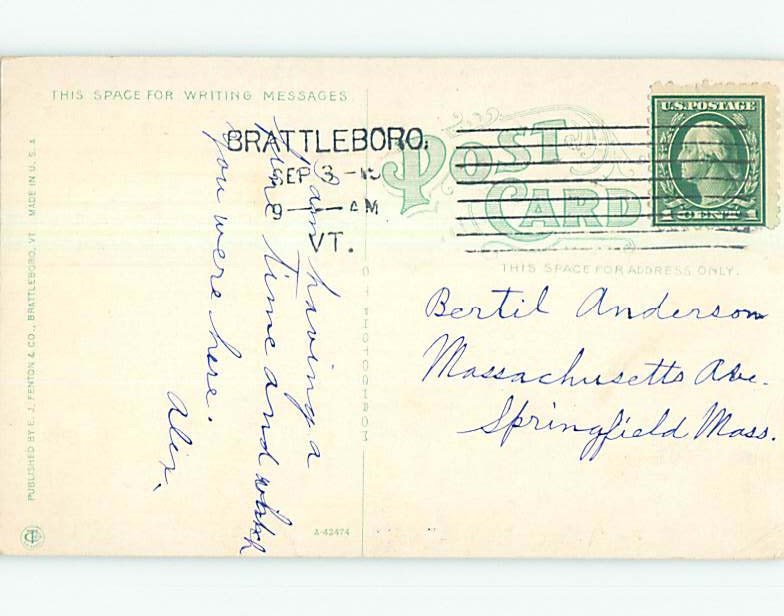 THIS SPACE FOR WRITING MESSAGES
I am having a
fine time and wish
you were here.
Alix.
BRATTLEBORO,
SEP 3
9 AM
VT.
POST
CARD
U.S. POSTAGE
1 CENT 1
THIS SPACE FOR ADDRESS ONLY.
Bertil Anderson
Massachusetts Ave.
Springfield Mass.
PUBLISHED BY E. J. FENTON & CO., BRATTLEBORO, VT. MADE IN U. S. A
A-42474